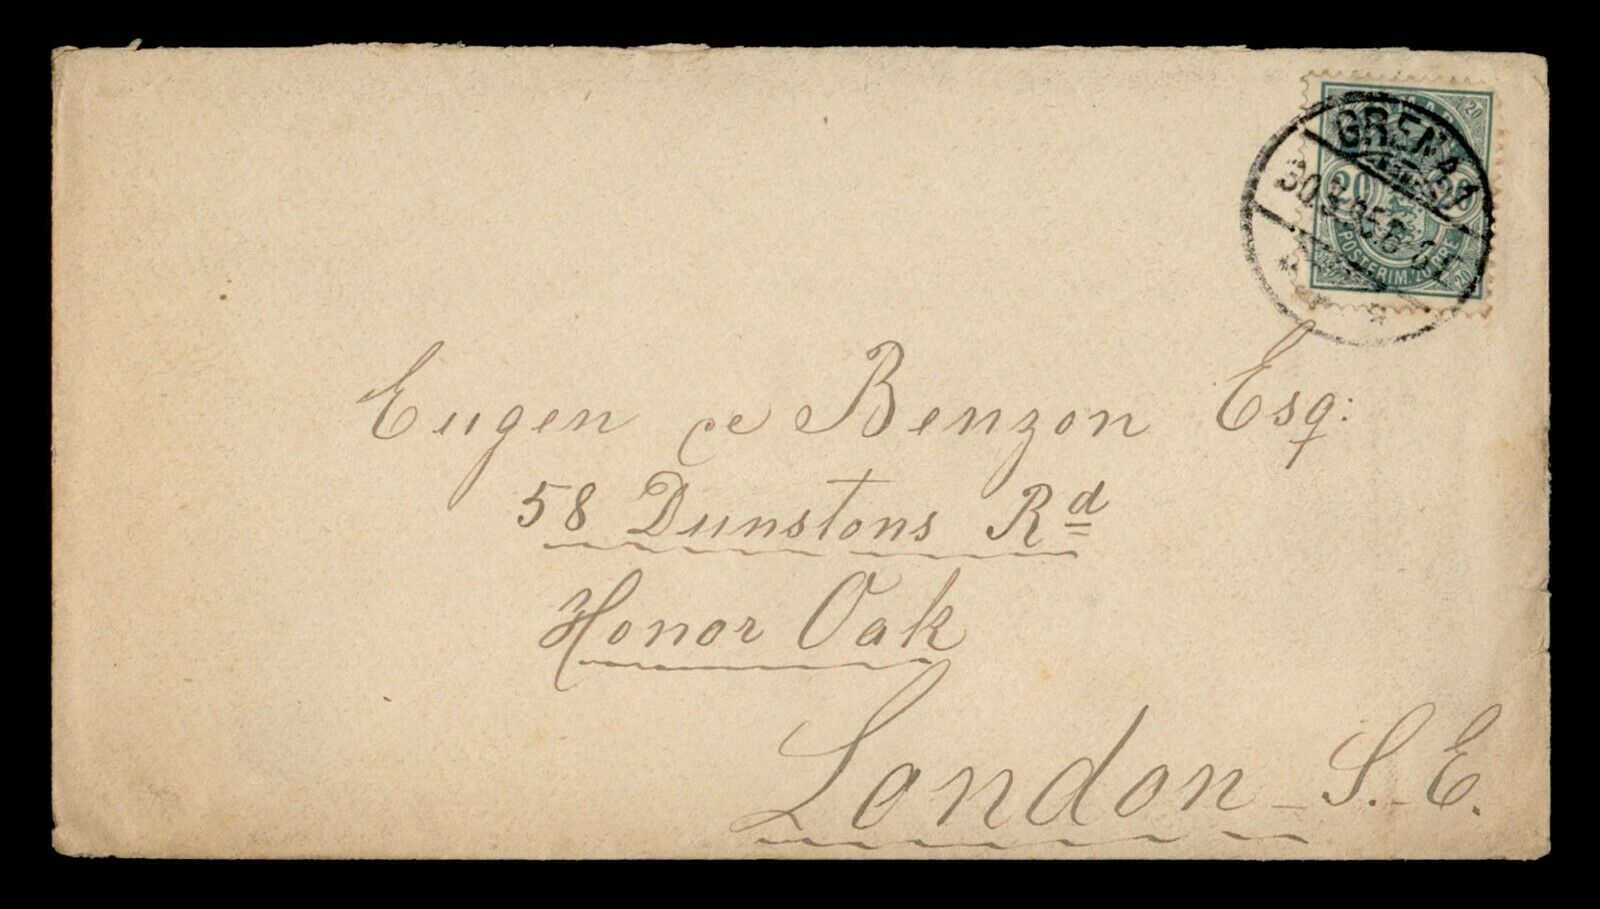 GRENAA
30.3.95.
20 20
POSTFRIM. 20 ØRE
20
20
Eugen de Benzon Esq:
58 Dunstons Rd
Honor Oak
London S.E.